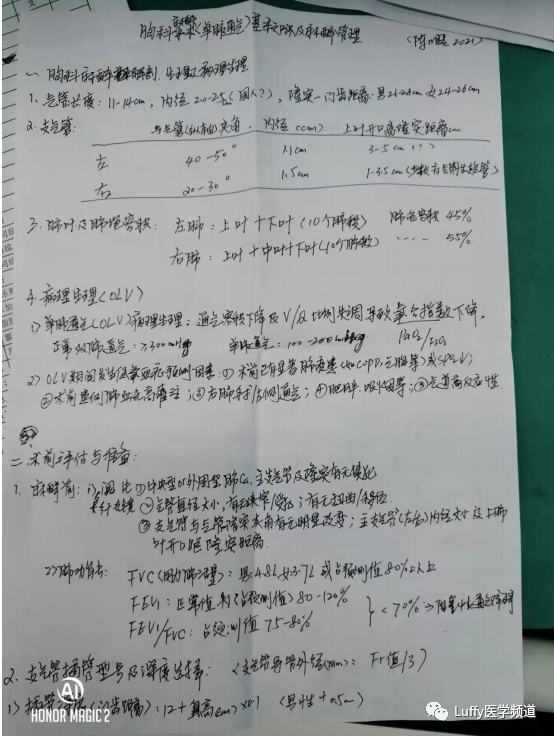 胸科麻醉(单肺通气)基本知识及麻醉管理 2021)
一、胸科 生理及病理生理
1. 气管长度: 11-14cm, 内径 2.0-2.5 (国人?), 隆突-门齿距离: 男26-28cm 女24-26cm
2. 支气管: 与气管(纵轴)夹角. 内径(cm) 上叶开口离隆突距离cm
左 40-50° 1.1cm 3-5cm(?)
右 20-30° 1.5cm 1-3.5cm
3. 肺叶及肺泡容积: 左肺: 上叶+下叶(10个肺段) 肺总容积 45%
右肺: 上叶+中叶+下叶(10个肺段) ---- 55%
4. 病理生理(OLV)
1) 单肺通气(OLV)病理生理: 通气容积下降及V/Q比例失调 导致氧合指数下降.
正常双肺通气: >300mmHg 单肺通气: 100-200mmHg PaO2/FiO2
2) OLV期间发生低氧血症预测因素: ① 术前
② 术前患侧肺血流高灌注; ③ 右肺手术/ 侧通气; ④ 肥胖、吸烟等; ⑤ 气道高反应性
二、术前评估与准备:
1. 麻醉前: 1) 阅片 ① 中央型or外周型肺Ca, 主支气管及隆突有无侵犯
② 气管直径大小, 有无狭窄/ ; 有无扭曲/移位
③ 支气管与气管隆突夹角有无明显改变; 主支气管(左右)内径大小及上肺
叶开口距隆突距离.
2) 肺功能: FVC(用力肺活量): 男4.8L 女3.7L 或占预测值80%以上
FEV1: 正常值 (占预测值) 80-120%
FEV1/FVC: 占预测值 75-80% } <70% ⇒ 阻塞性通气障碍
2. 支气管插管型号及深度选择: (支气管导管外径(mm): Fr值/3)
1) (门齿距离): 12 + 身高(cm)×0.1 (男性+0.5cm)
AI
HONOR MAGIC 2
Luffy医学频道